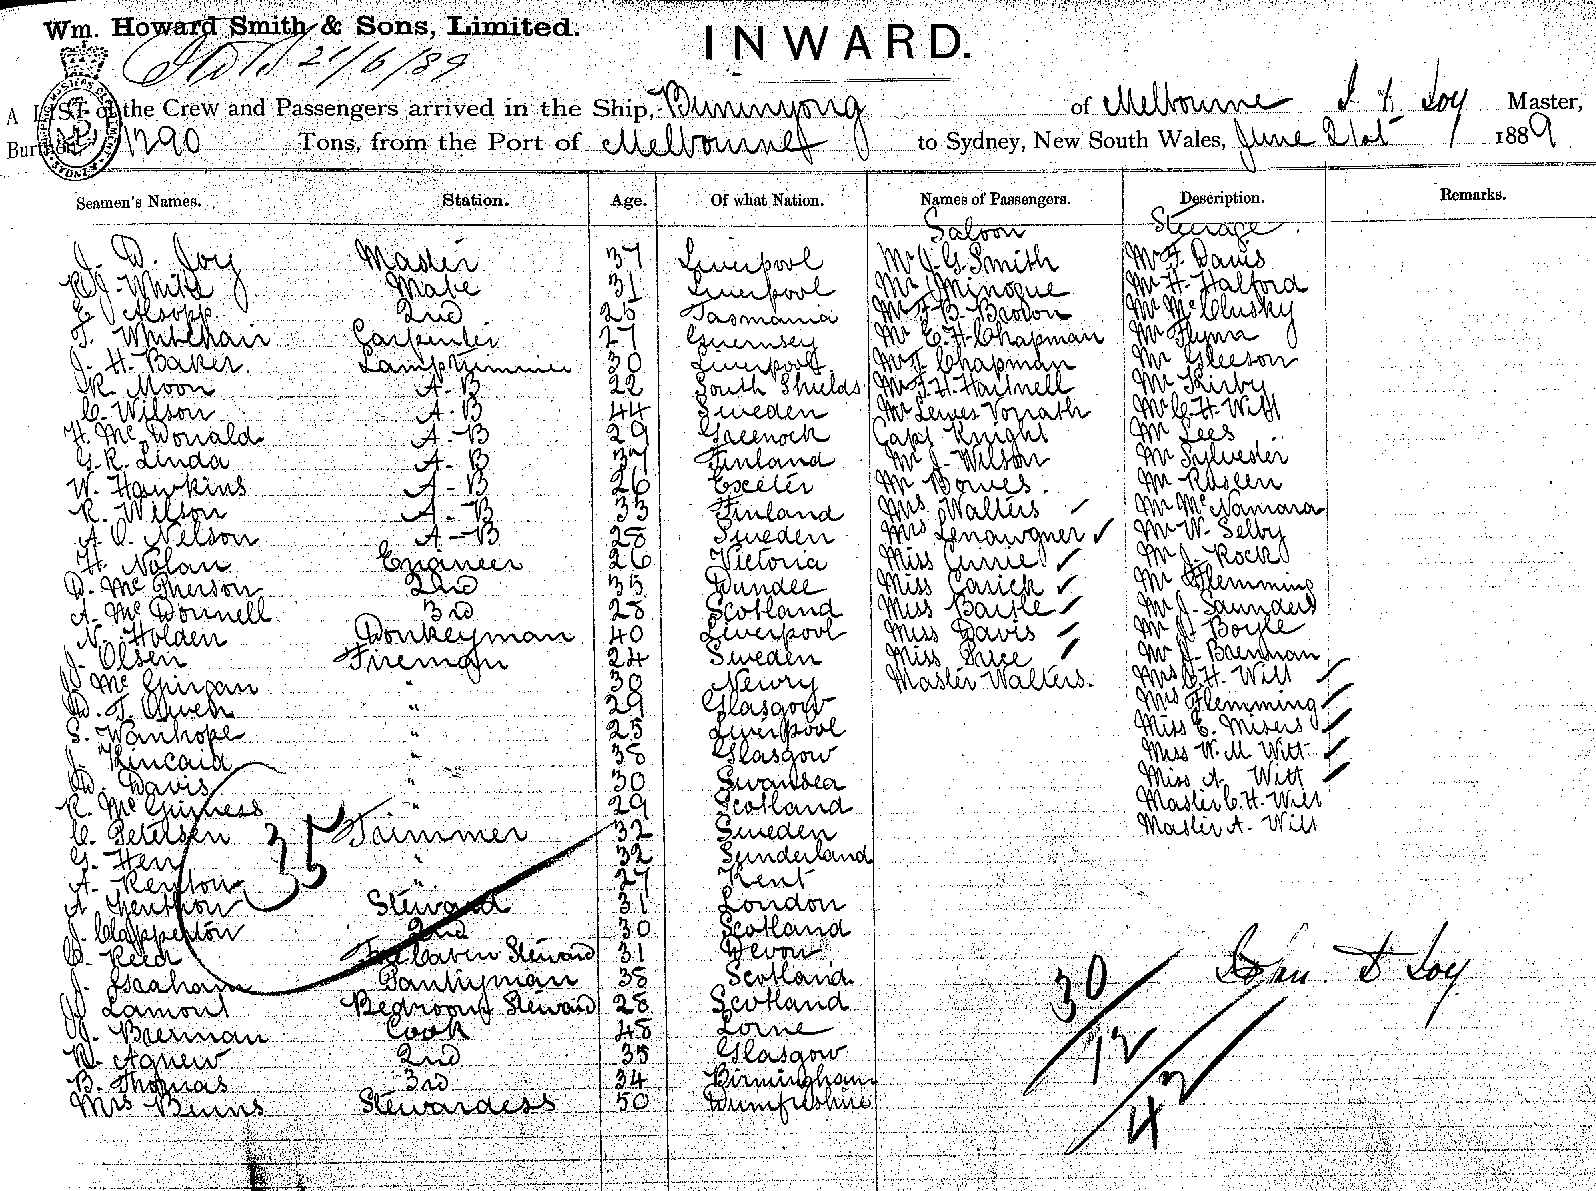 Wm. Howard Smith & Sons, Limited.
INWARD.
21/6/89
A LIST of the Crew and Passengers arrived in the Ship, Buninyong of Melbourne Joy Master,
Burthen 1290 Tons, from the Port of Melbourne to Sydney, New South Wales, June 21st 1889
Seamen's Names. Station. Age. Of what Nation. Names of Passengers. Description. Remarks.
Saloon Steerage
J. D. Joy Master 37 Liverpool Mr J. G. Smith Mr F. Davis
R J. White Mate 31 Liverpool Mr Minogue Mr H. Halford
E. Alsopp 2nd 25 Tasmania Mr F. B. Brown Mr McClusky
T. Whitehair Carpenter 27 Guernsey Mr E. H. Chapman Mr Flynn
J. H. Baker Lamptrimmer 30 Liverpool Mr Chapman Mr Gleeson
R. Moon A-B 22 South Shields Mr F. H. Hartnell Mr Kirby
C. Wilson A-B 44 Sweden Mr Lewes Vonrath Mr C. H. Witt
H. McDonald A-B 29 Greenock Capt Knight Mr Lees
G. R. Linda A-B 37 Finland Mr J. Wilson Mr Sylvester
W. Hawkins A-B 26 Exeter Mr Bowes. Mr Roslen
R. Wilson A-B 33 Finland Mrs Walters Mr McNamara
A. O. Nelson A-B 28 Sweden Mrs Lenawgner Mr W. Selby
H. Nolan Engineer 26 Victoria Miss Currie Mr J. Rock
D. McPherson 2nd 35 Dundee Miss Carick Mr Flemming
A. McDonnell 3rd 28 Scotland Miss Mr J. Saunders
N. Holden Donkeyman 40 Liverpool Miss Davis Mr J. Boyle
J. Olsen Fireman 24 Sweden Miss Price Mr J. Brennan
J. McGivran " 30 Newry Master Walters. Mrs C. H. Witt
D. T. Owen " 29 Glasgow Mrs Flemming
S. Wanhope " 25 Liverpool Miss E. Misers
J. Kincaid " 38 Glasgow Miss W. M. Witt
D. Davis " 30 Swansea Miss A. Witt
R. McGuiness " 29 Scotland Master C. H. Witt
C. Petersen Trimmer 32 Sweden Master A. Witt
G. Herr " 32 Sunderland
A. Renton " 27 Kent
A. Steward 31 London
J. Clapperton 2nd 30 Scotland
Reed Fore Caben Steward 31 Devon
J. Graham Pantryman 38 Scotland
J. Lamont Bedroom Steward 28 Scotland
J. Brennan Cook 48 Lorne
R. Agnew 2nd 35 Glasgow
B. Thomas 3rd 34 Birmingham
Mrs Binns Stewardess 50 Dumfrishire
35
30
12
42
John D Joy